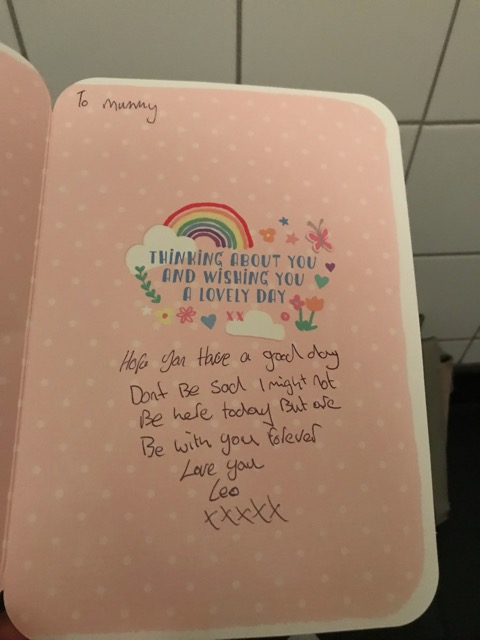 To mummy
THINKING ABOUT YOU
AND WISHING YOU
A LOVELY DAY
Hope you Have a good day
Dont Be Sad I might not
Be here today But are
Be with you forever
Love you
Leo
xxxxx